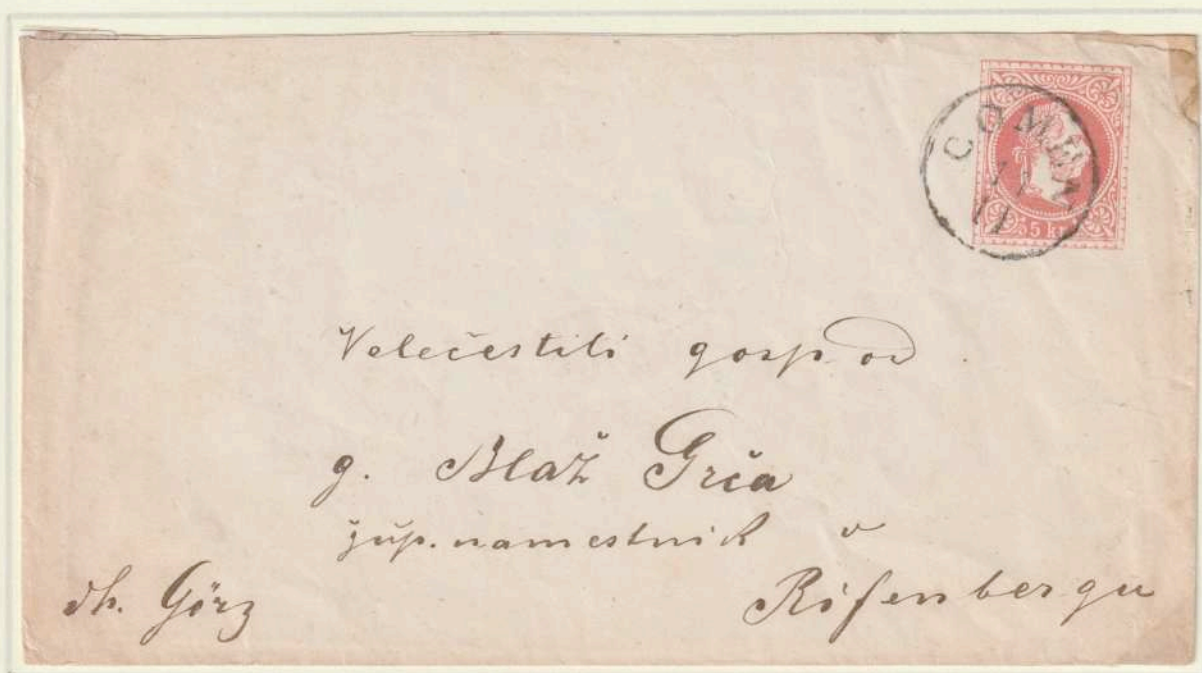 COMEN
11
11
5 kr
Velečestiti gospod
g. Blaž Grča
žup. namestnik v
Rifenbergu
Görz